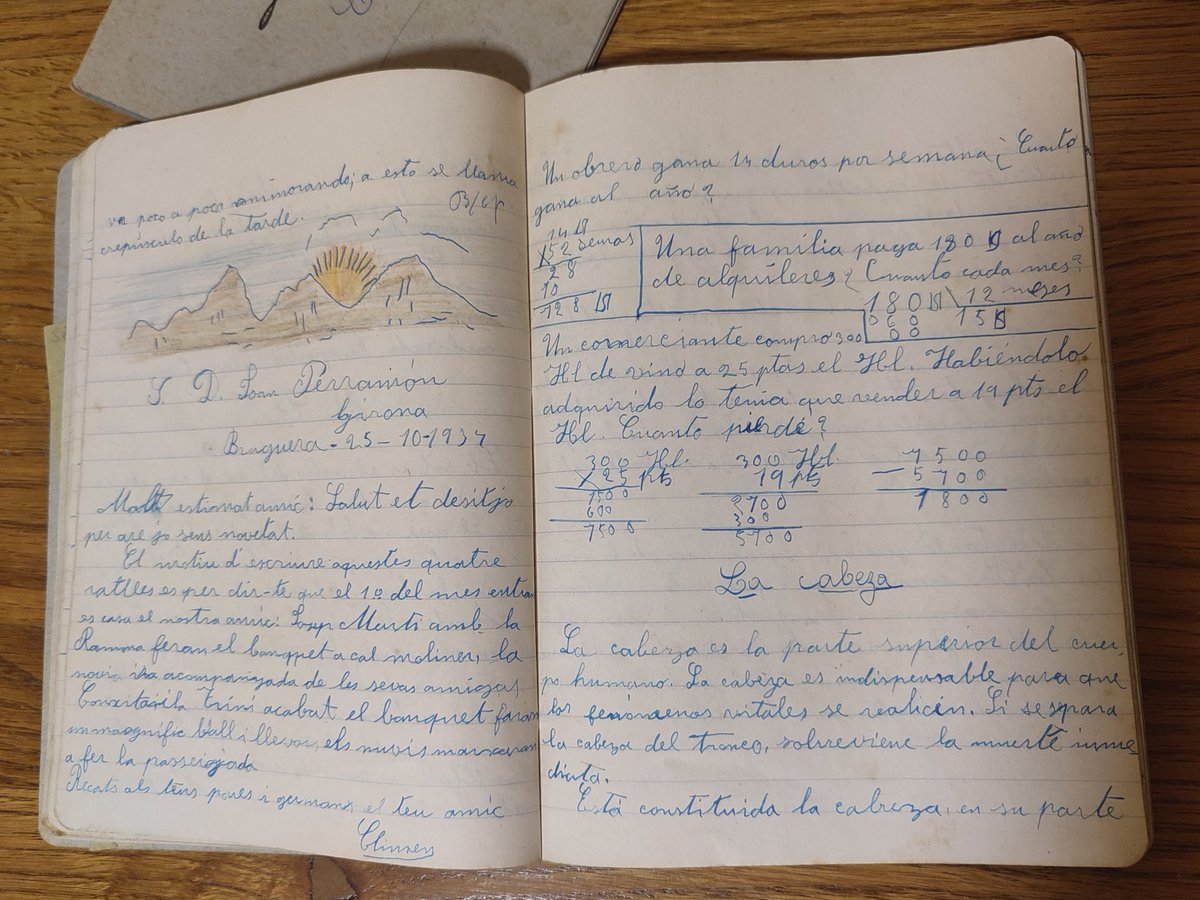 va poco a poco aminorando; a esto se llama
crepúsculo de la tarde.
S. D. Joan Perramón
Girona
Bruguera - 25 - 10-1934
Molt estimat amic: Salut et desitjo
per are jo sens novetat.
El motiu d'escriure aquestes quatre
ratlles es per dir-te que el 1º del mes entran
es casa el nostra amic: Josep Marti amb la
Ramona feran el banquet a cal moliner, la
novia ira acompanyada de les sevas amigas
Trini acabat el banquet faran
un magnific ball i llevors els nuvis marxaran
a fer la passejada
Recats als tens pares i germans el teu amic
Un obrero gana 14 duros por semana ¿ Cuanto
gana al año?
14
X52 semas
28
70
728
Una família paga 180 al año
de alquíleres ¿ Cuanto cada mes?
180 12 meses
060 15
00
Un comerciante compro 300
Hl de vino a 25 ptas el Hl. Habiéndolo
adquirido lo tenia que vender a 19 pts el
Hl. Cuanto pierdé?
300 Hl 300 Hl 7500
X 25 pts 19 pts - 5700
1500 2700 1800
600 300
7500 5700
La cabeza
La cabeza es la parte superior del cuer-
po humano. La cabeza es indispensable para que
los fenómenos vitales se realicen. Si se separa
la cabeza del tronco, sobreviene la muerte inme
diata.
Está constituida la cabeza, en su parte